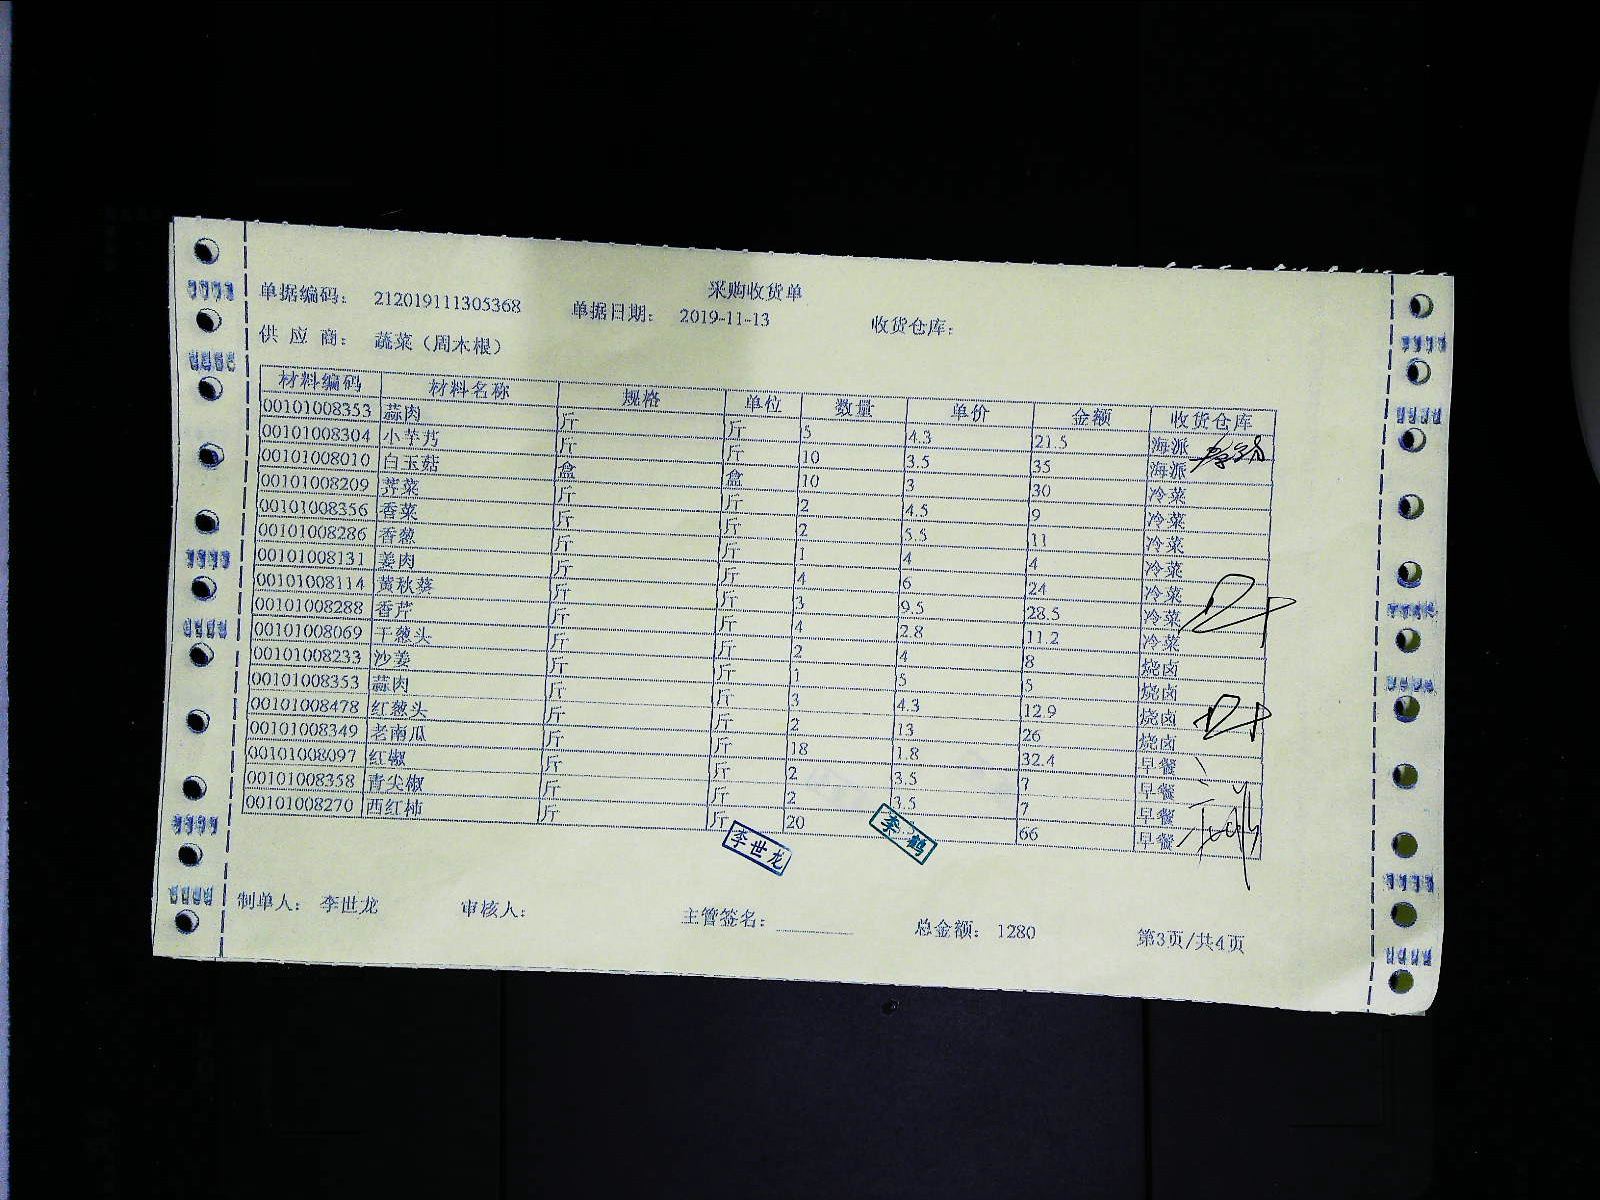 采购收货单
单据编码： 212019111305368 单据日期： 2019-11-13 收货仓库：
供 应 商： 蔬菜（周木根）
材料编码 材料名称 规格 单位 数量 单价 金额 收货仓库
00101008353 蒜肉 斤 斤 5 4.3 21.5 海派
00101008304 小芋艿 斤 斤 10 3.5 35 海派
00101008010 白玉菇 盒 盒 10 3 30 冷菜
00101008209 荠菜 斤 斤 2 4.5 9 冷菜
00101008356 香菜 斤 斤 2 5.5 11 冷菜
00101008286 香葱 斤 斤 1 4 4 冷菜
00101008131 姜肉 斤 斤 4 6 24 冷菜
00101008114 黄秋葵 斤 斤 3 9.5 28.5 冷菜
00101008288 香芹 斤 斤 4 2.8 11.2 冷菜
00101008069 干葱头 斤 斤 2 4 8 烧卤
00101008233 沙姜 斤 斤 1 5 5 烧卤
00101008353 蒜肉 斤 斤 3 4.3 12.9 烧卤
00101008478 红葱头 斤 斤 2 13 26 烧卤
00101008349 老南瓜 斤 斤 18 1.8 32.4 早餐
00101008097 红椒 斤 斤 2 3.5 7 早餐
00101008358 青尖椒 斤 斤 2 3.5 7 早餐
00101008270 西红柿 斤 斤 20 66 早餐
李世龙 李鹤
制单人： 李世龙 审核人： 主管签名： 总金额： 1280 第3页/共4页